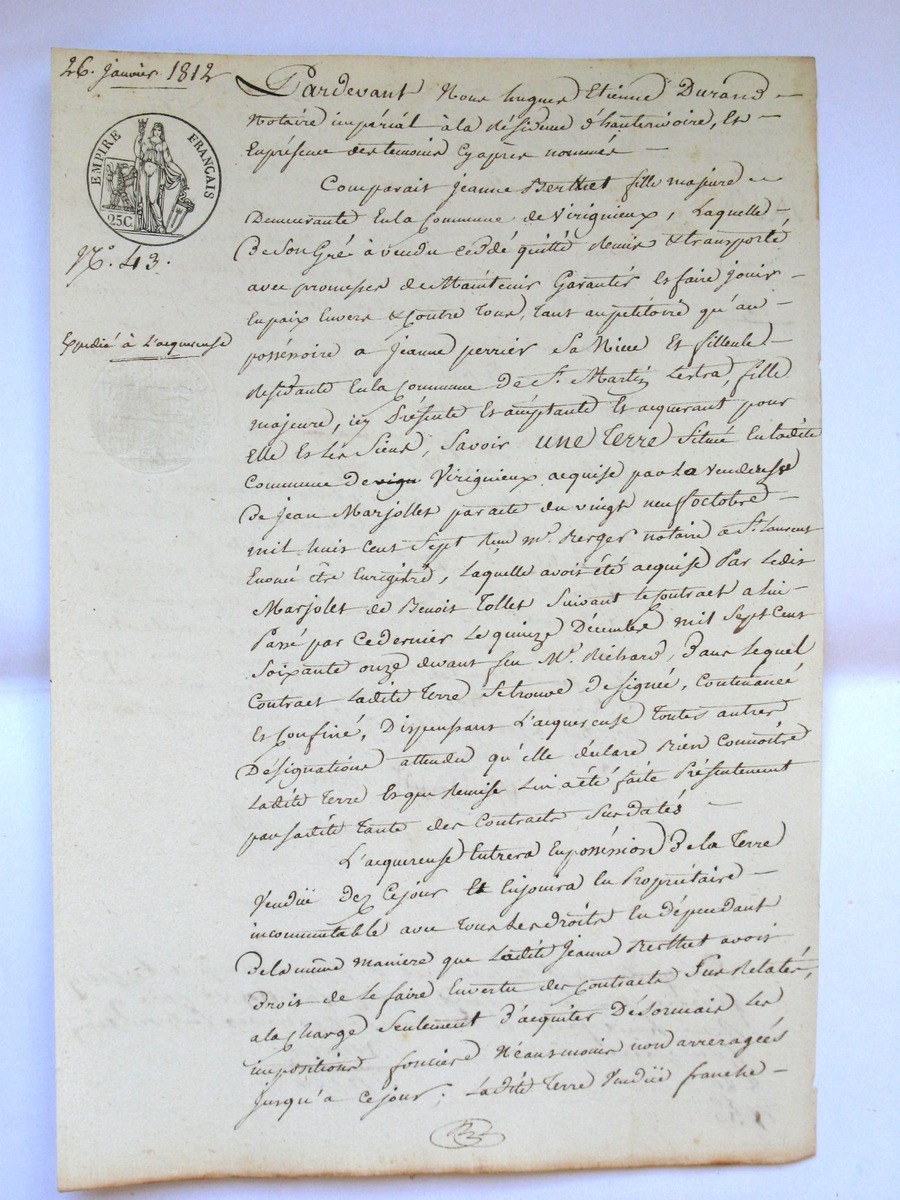 26. janvier 1812
EMPIRE FRANÇAIS
25C
N.° 43.
Expedié à L'acquereuse
Pardevant Nous hugues Etienne Durand
Notaire impérial à la résidence d'hauterivoire, Et
En présence des temoins Cy après nommés
Comparait Jeanne Berthet fille majeure
Demeurante En la Commune de Virignieux, Laquelle
De son Gré à vendu ceddé quitté Remis & transporté
avec promesses de Maintenir Garantir Et faire jouir
En paix Envers & Contre Tous, tant au pétitoire qu'au
possessoire a Jeanne perrier Sa Niece Et filleule
résidante En la Commune de St. Martin Lestra, fille
majeure, icy Présente Et acceptante Et acquerant pour
Elle Et Les Siens, Savoir une Terre Située En ladite
Commune de Virignieux acquise par La venderesse
De Jean Marjollet par acte du vingt neuf octobre
mil huit cent Sept Reçu Me. Berger notaire a St. Laurent
Enoncé être Enregistré, Laquelle avoit été acquise Par Ledit
Marjolet de Benoit Tollet Suivant le Contract a lui
Passé par ce dernier Le quinze Décembre mil Sept Cent
Soixante onze devant feu Me. Richard, Dans Lequel
Contract Ladite Terre Se trouve Designée, Contenancée
Et Confinée, Dispensant L'acquereuse Toutes autres
Désignations attendu qu'elle déclare Bien Connoître
Ladite Terre Et que Remise Lui a été faite Présentement
par Ladite Tante des Contracts Sus datés
L'acquereuse Entrera En possession De la Terre
Venduë dez Ce jour Et En jouira En Propriétaire
incommutable avec Tous Les droits En dépendant
De la même maniere que Ladite Jeanne Berthet avoit
droit de Le faire En vertu des Contracts Sus Relatés,
a la Charge Seulement d'acquiter Désormais Les
impositions foncieres Néansmoins non arreragées
Jusqu'à ce jour; Ladite Terre Venduë franche